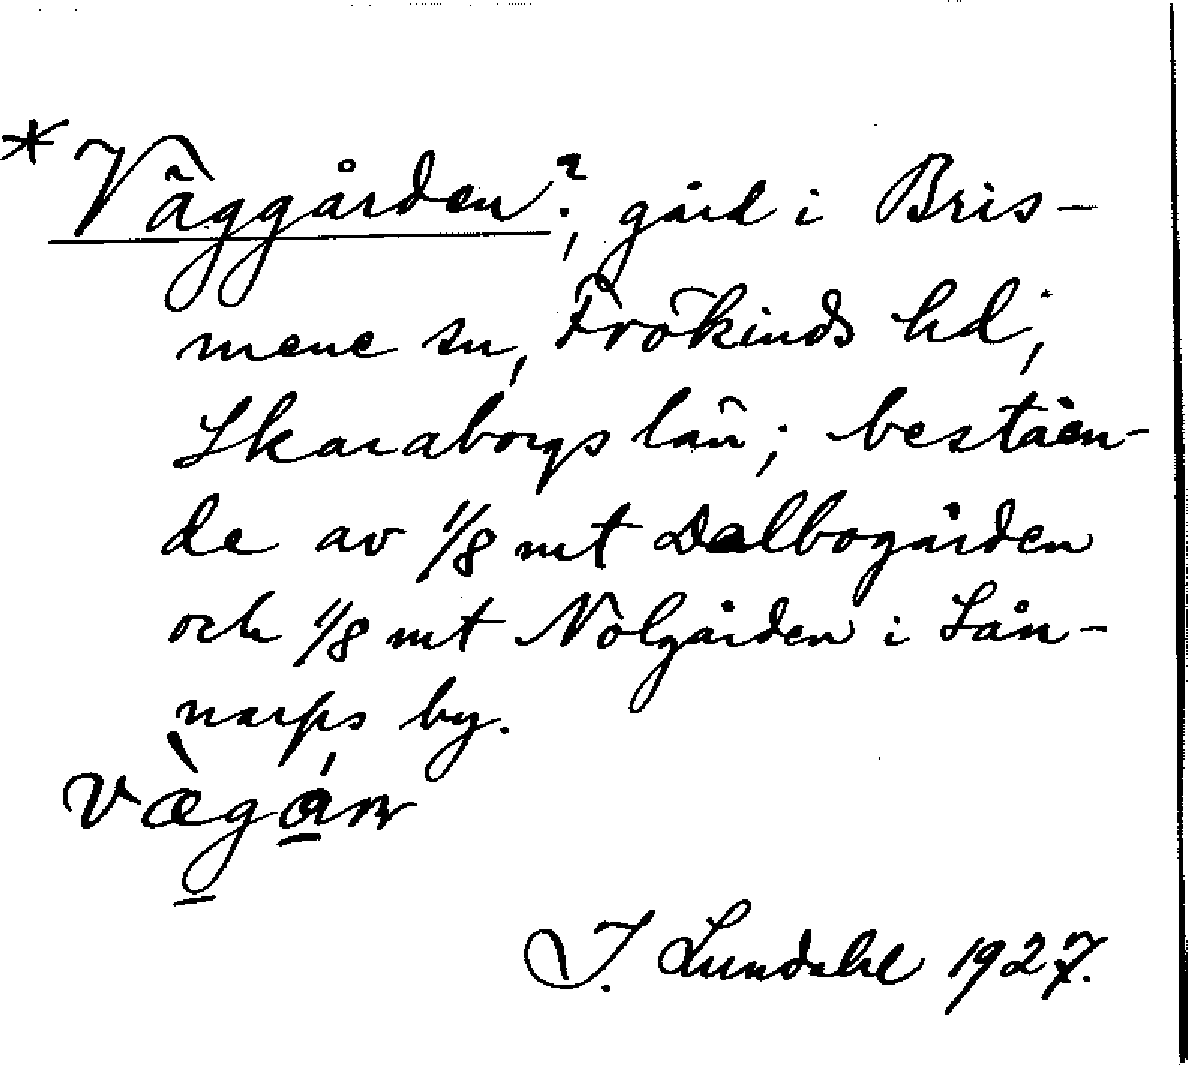 *Väggården?, gård i Bris-
mene sn, Frökinds hd,
Skaraborgs län; bestäen-
de av 1/8 mt Dalbogården
och 1/8 mt Nolgården i Sån-
narps by.
I. Lundahl 1927.